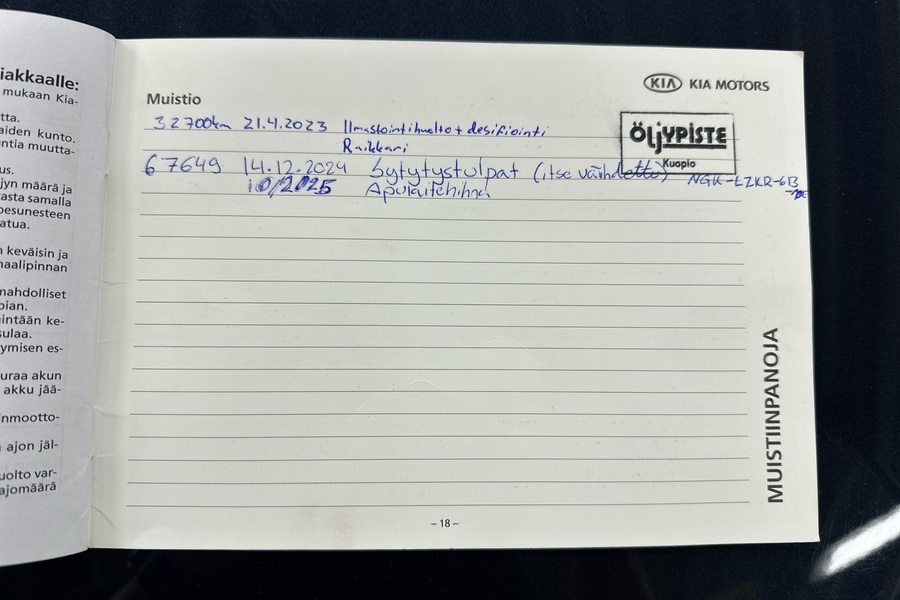 iakkaalle:
mukaan Kia-
tta.
aiden kunto.
ntia muutta-
us.
jyn määrä ja
asta samalla
pesunesteen
atua.
n keväisin ja
naalipinnan
mahdolliset
pian.
intään ke-
sulaa.
ymisen es-
uraa akun
akku jää-
nmootto-
ajon jäl-
uolto var-
ajomäärä
KIA KIA MOTORS
Muistio
32700km 21.4.2023 Ilmastointihuolto + desifiointi
ÖLJYPISTE
Kuopio
67649 14.12.2024 Sytytystulpat (itse vaihdettu) NGK-LZKR-6B
10/2025 Apulaitehihna
MUISTIINPANOJA
– 18 –